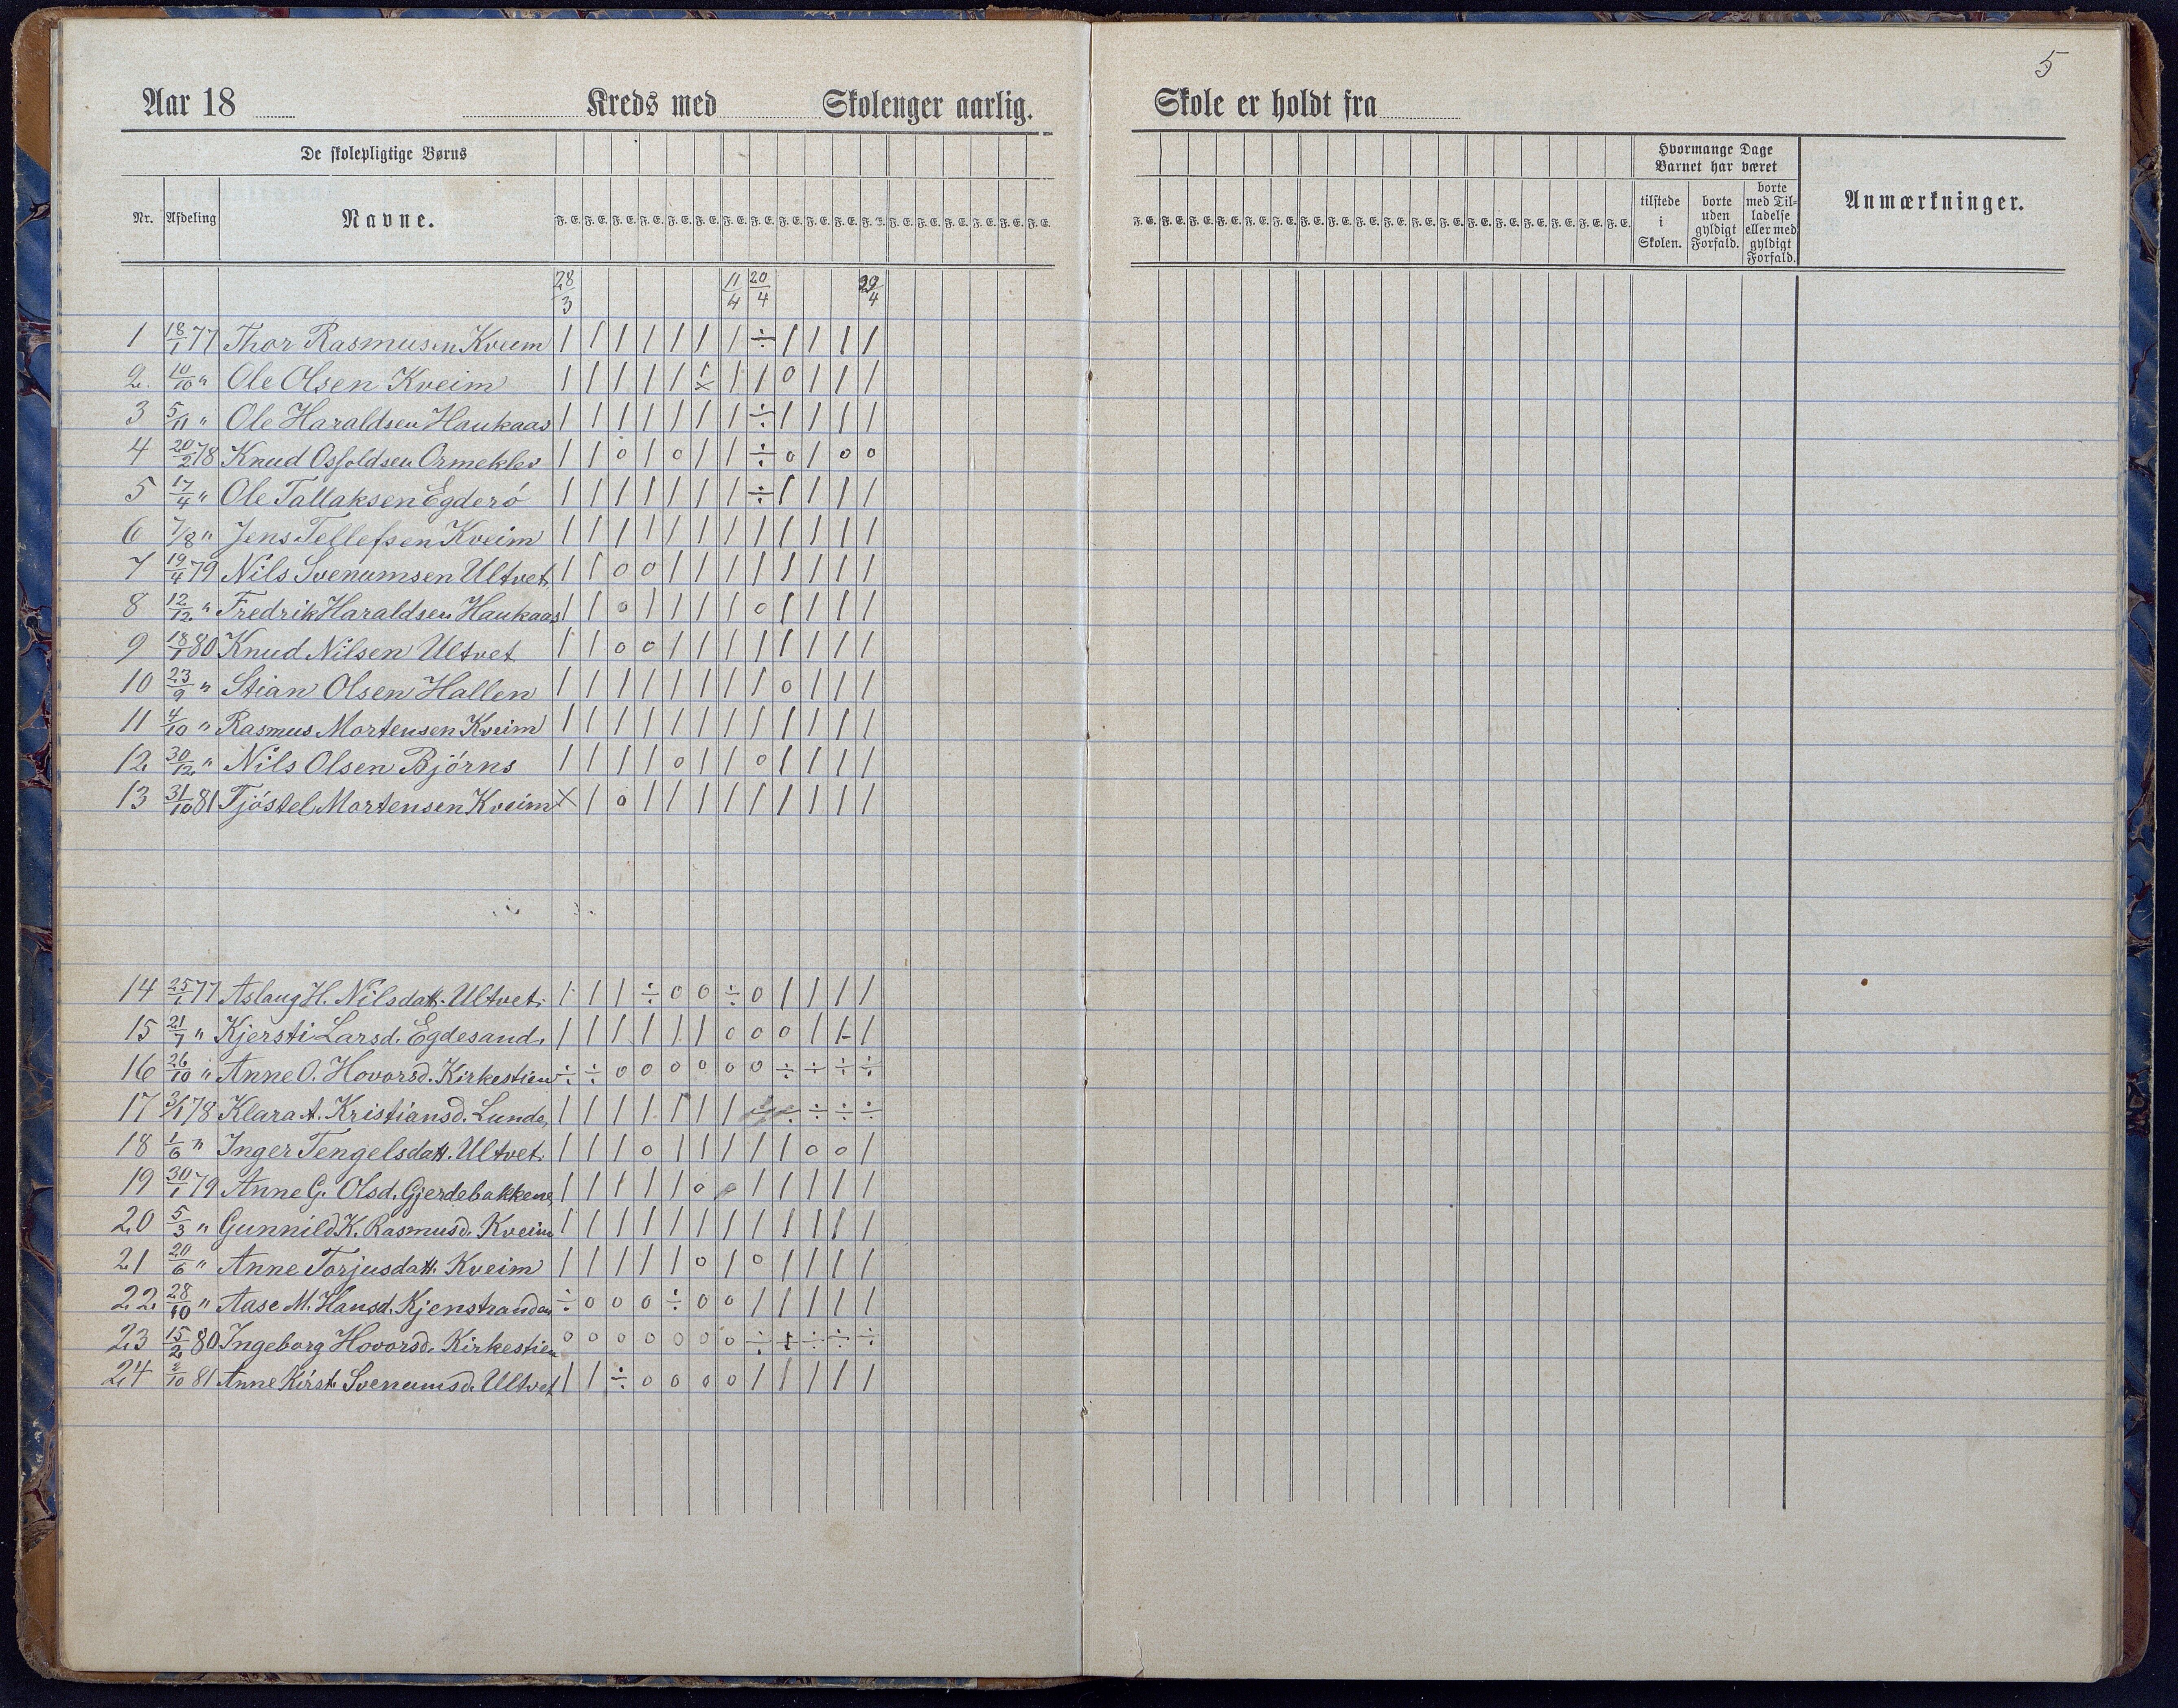 5
Aar 18 Kreds med Skolenger aarlig. Skole er holdt fra
De skolepligtige Børns
Hvormange Dage Barnet har været
Nr. Afdeling Navne. F. E. F. E. F. E. F. E. F. E. F. E. F. E. F. E. F. E. F. E. F. E. F. E. F. E. F. E. F. E. F. E. F. E. F. E.
tilstede i Skolen. borte uden gyldigt Forfald. borte med Tilladelse eller med gyldigt Forfald. Anmærkninger.
28/3 11/4 20/4 29/4
1 18/1 77 Thor Rasmusen Kveim | | | | | | | ÷ | | | |
2. 10/10 " Ole Olsen Kveim | | | | | | | | 0 | | |
3 5/11 " Ole Haraldsen Haukaas | | | | | | | ÷ | | | |
4 20/2 78 Knud Osfoldsen Ormeklev | | 0 | 0 | | ÷ 0 | 0 0
5 17/4 " Ole Tallaksen Egderö | | | | | | | ÷ | | | |
6 7/8 " Jens Tellefsen Kveim | | | | | | | | | | | |
7 19/4 79 Nils Svenumsen Ultvet. | | 0 0 | | | | | | | |
8 12/12 " Fredrik Haraldsen Haukaas | | 0 | | | | 0 | | | |
9 18/1 80 Knud Nilsen Ultvet | | 0 0 | | | | | | | |
10 23/9 " Stian Olsen Hallen | | | | | | | | 0 | | |
11 4/10 " Rasmus Mortensen Kveim | | | | | | | | | | | |
12 30/12 " Nils Olsen Björns | | | | 0 | | 0 | | | |
13 31/10 81 Tjöstel Mortensen Kveim X | 0 | | | | | | | | |
14 25/1 77 Aslaug H. Nilsdatt. Ultvet. | | | ÷ 0 0 ÷ 0 | | | |
15 21/7 " Kjersti Larsd. Egdesand. | | | | | | 0 0 0 | | |
16 26/10 " Anne O. Hovorsd. Kirkestien ÷ ÷ 0 0 0 0 0 0 ÷ ÷ ÷ ÷
17 3/1 78 Klara A. Kristiansd. Lunde, | | | | | | | ÷ ÷ ÷ ÷
18 1/6 " Inger Tengelsdatt. Ultvet. | | | 0 | | | | | 0 0 |
19 30/1 79 Anne G. Olsd. Gjerdebakkene, | | | | | 0 | | | | |
20 5/3 " Gunnild K. Rasmusd. Kveim | | | | | | | | | | | |
21 20/6 " Anne Torjusdatt. Kveim | | | | | 0 | 0 | | | |
22. 28/10 " Aase M. Hansd. Kjenstranden ÷ 0 0 0 ÷ 0 0 | | | | |
23 15/2 80 Ingeborg Hovorsd. Kirkestien 0 0 0 0 0 0 0 ÷ ÷ ÷ ÷ ÷
24 2/10 81 Anne Kirst. Svenumsd. Ultvet | | ÷ 0 0 0 0 | | | | |